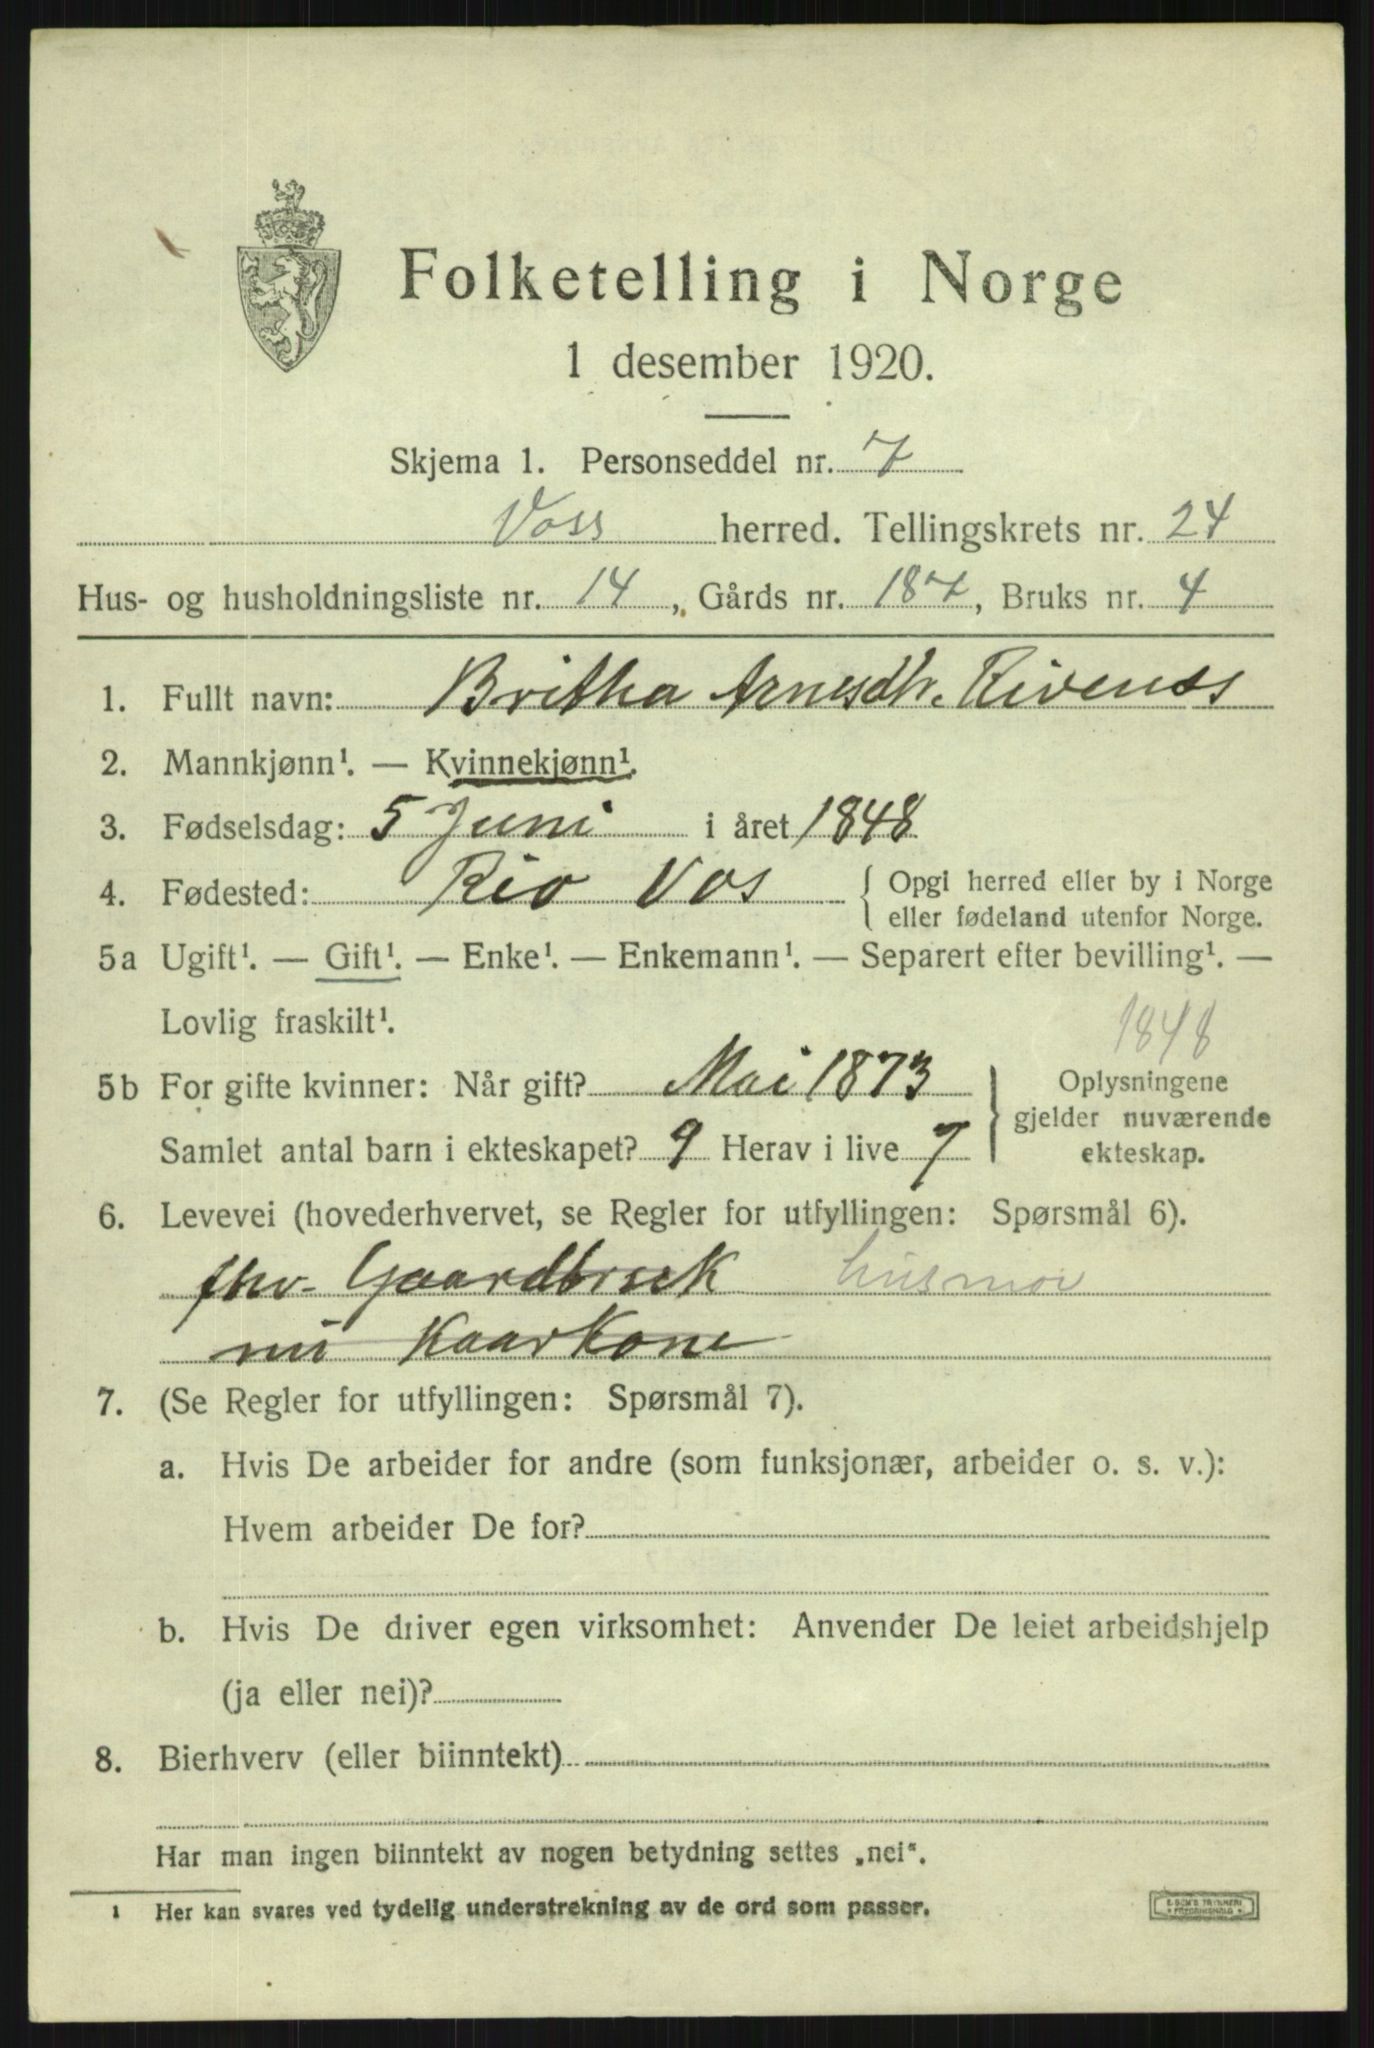 Folketelling i Norge
1 desember 1920.
Skjema 1. Personseddel nr. 7
Voss herred. Tellingskrets nr. 24
Hus- og husholdningsliste nr. 14, Gårds nr. 187, Bruks nr. 4
1. Fullt navn: Britha Arnesdtr. Rivenes
2. Mannkjønn¹. — Kvinnekjønn¹.
3. Fødselsdag: 5 Juni i året 1848
4. Fødested: Rio Vos { Opgi herred eller by i Norge
eller fødeland utenfor Norge.
5a Ugift¹. — Gift¹. — Enke¹. — Enkemann¹. — Separert efter bevilling¹. —
Lovlig fraskilt¹.
1848
5b For gifte kvinner: Når gift? Mai 1873
Samlet antal barn i ekteskapet? 9 Herav i live 7
} Oplysningene
gjelder nuværende
ekteskap.
6. Levevei (hovederhvervet, se Regler for utfyllingen: Spørsmål 6).
fhv. Gaardbruk husmor
nu Kaarkone
7. (Se Regler for utfyllingen: Spørsmål 7).
a. Hvis De arbeider for andre (som funksjonær, arbeider o. s. v.):
Hvem arbeider De for?
b. Hvis De driver egen virksomhet: Anvender De leiet arbeidshjelp
(ja eller nei)?
8. Bierhverv (eller biinntekt)
Har man ingen biinntekt av nogen betydning settes „nei".
1 Her kan svares ved tydelig understrekning av de ord som passer.